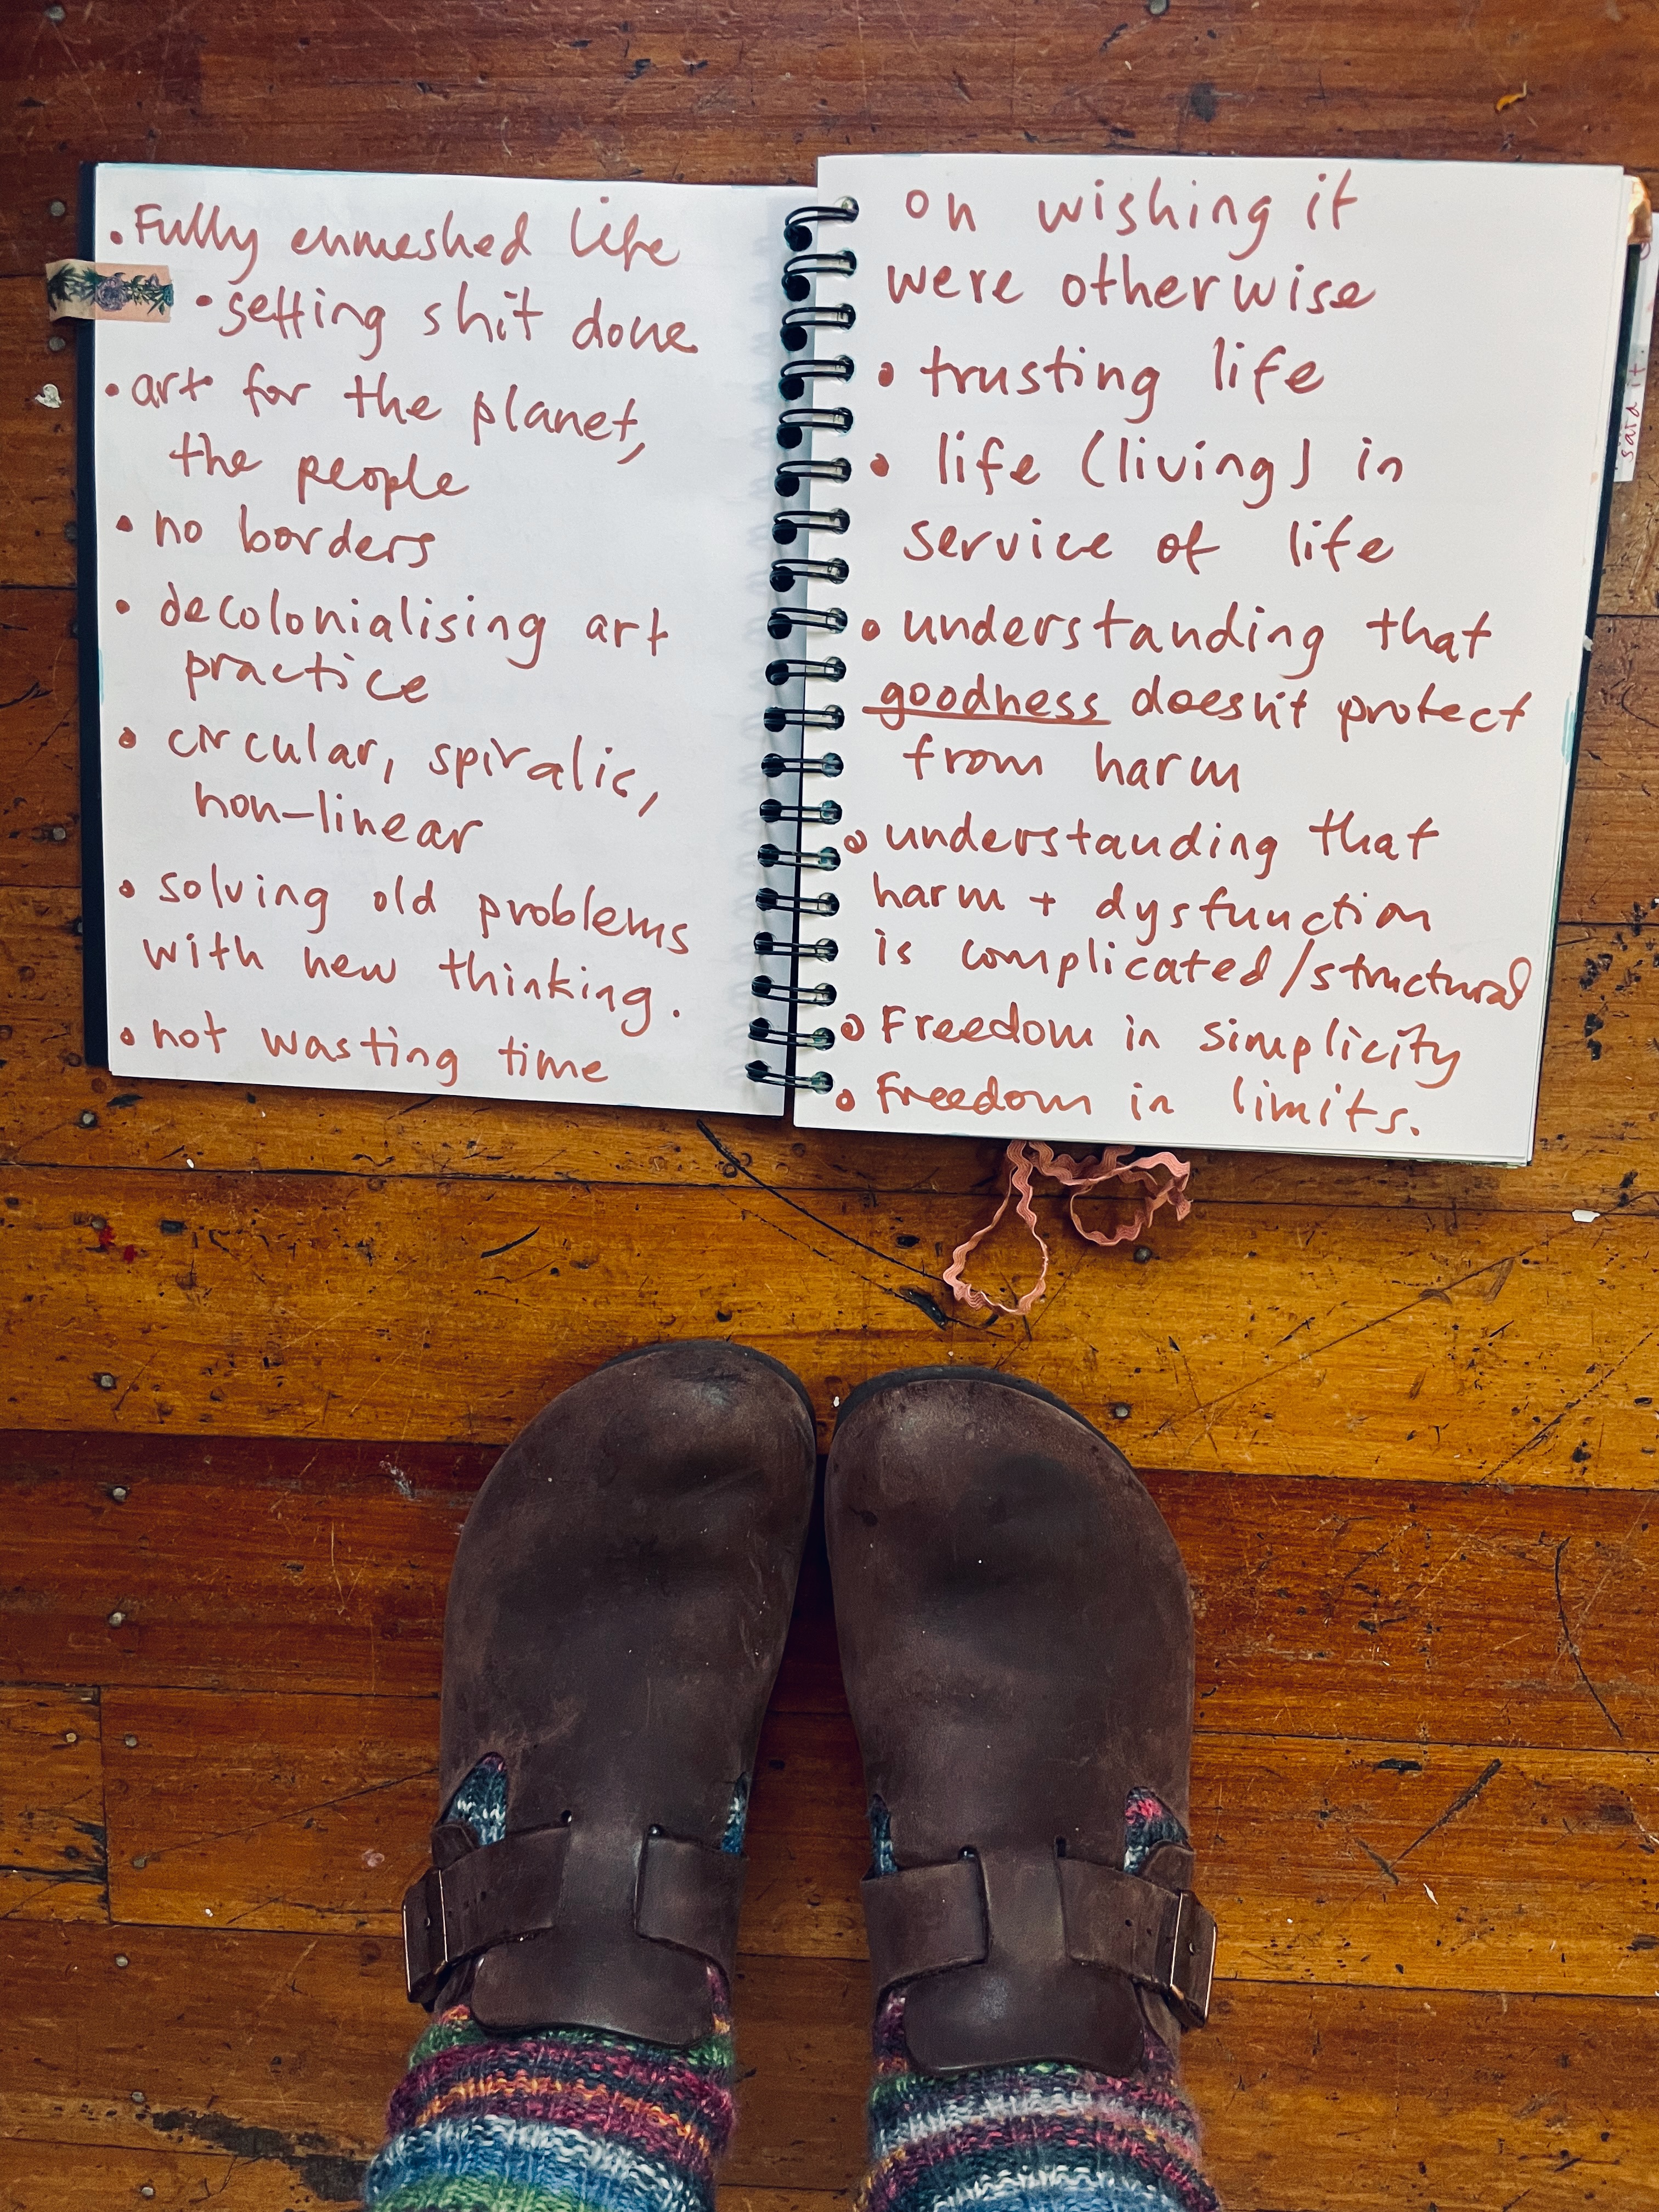 • Fully enmeshed life
• getting shit done
• art for the planet,
the people
• no borders
• decolonialising art
practice
• circular, spiralic,
non-linear
• solving old problems
with new thinking.
• not wasting time
on wishing it
were otherwise
• trusting life
• life (living) in
service of life
• understanding that
goodness doesn't protect
from harm
• understanding that
harm + dysfunction
is complicated/structural
• Freedom in simplicity
• Freedom in limits.
said it.